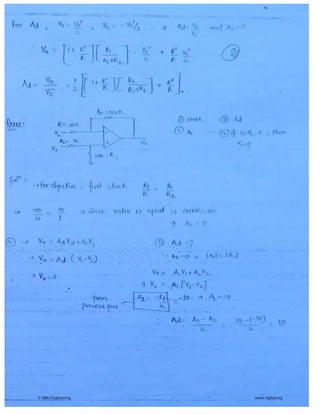 For Ad , V₁ = Vd/2 , V₂ = -Vd/2 ... → Ad = Vo/Vd and Ac = 0
∴ Vo = [1 + R'/R] [R₂/(R₁+R₂)] · Vd/2 + R'/R · Vd/2 ②
Ad = Vo/Vd = 1/2 [[1 + R'/R] [R₂/(R₁+R₂)] + R'/R]
Ques:-
Rf = 100K
R = 10K
V₂
R₁ = 1K
V₁
Vo
10K = R₂
① CMRR ③ Ad
② Ac ④ If V₁ = V₂ = V , then
Vo = ?
Solⁿ
→ For objective , first check Rf/R = R₂/R₁
→ 100/10 = 10/1 → Since ratio is equal → CMRR = ∞
→ Ac = 0
④ → Vo = AdVd + AcVc
→ Vo = Ad (V₁-V₂)
→ Vo = 0
③ Ad = ?
∵ Ac = 0 → |A₁| = |A₂|
Vo = A₁V₁ + A₂V₂
→ Vo = A₁ [V₁-V₂]
from previous part → A₂ = -Rf/R = -10 → A₁ = 10
∴ Ad = (A₁ - A₂)/2 = (10 - (-10))/2 = 10
www.raghul.org